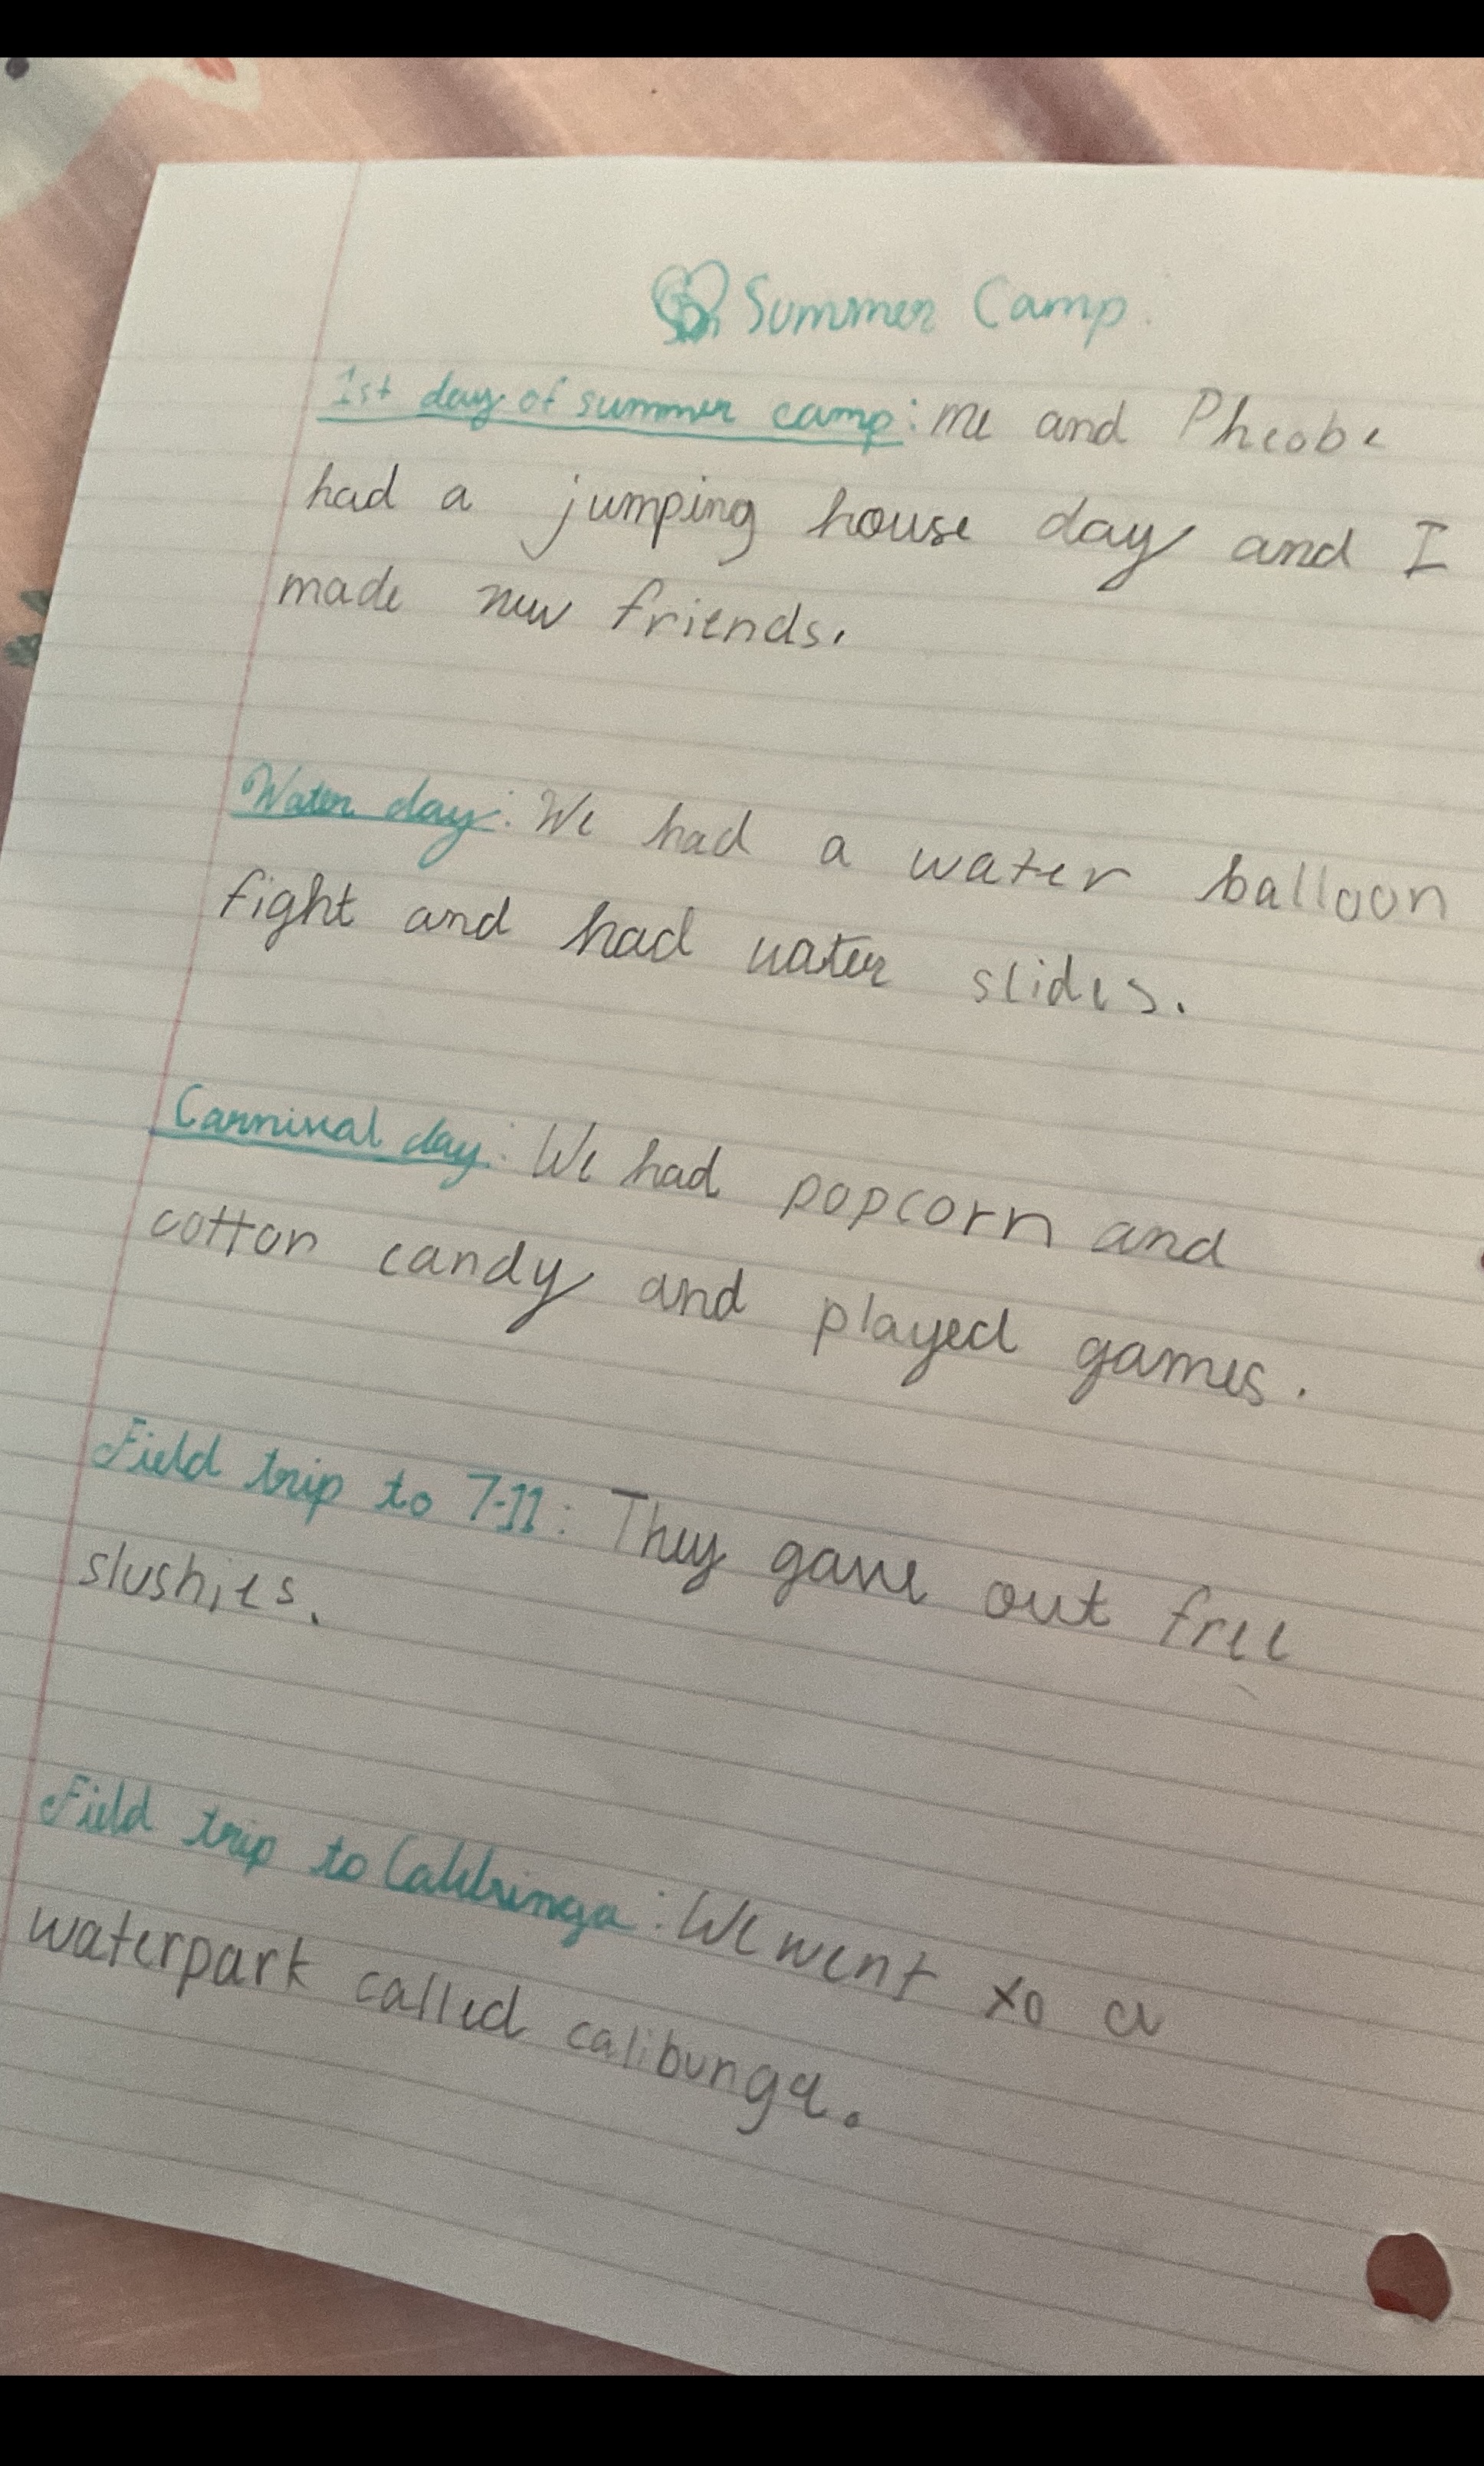 Summer Camp:
1st day of summer camp: me and Pheobe
had a jumping house day and I
made new friends.
Water day: We had a water balloon
fight and had water slides.
Carnival day: We had popcorn and
cotton candy and played games.
Field trip to 7-11: They gave out free
slushies.
Field trip to Calibunga: We went to a
waterpark called calibunga.